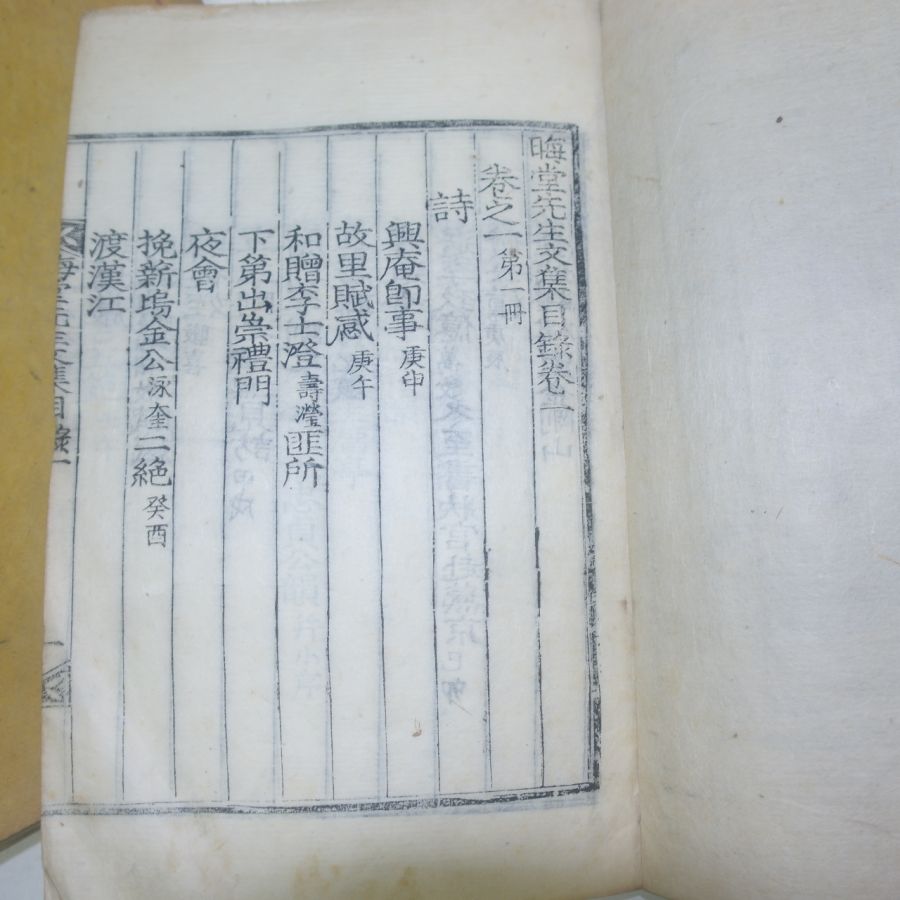 晦堂先生文集目錄卷一
卷之一 第一冊
詩
興庵即事 庚申
故里賦感 庚午
和贈李士澄 壽瀅 匪所
下第出崇禮門
夜會
挽新塢金公 泳奎 二絶 癸酉
渡漢江
晦堂先生文集目錄一
一